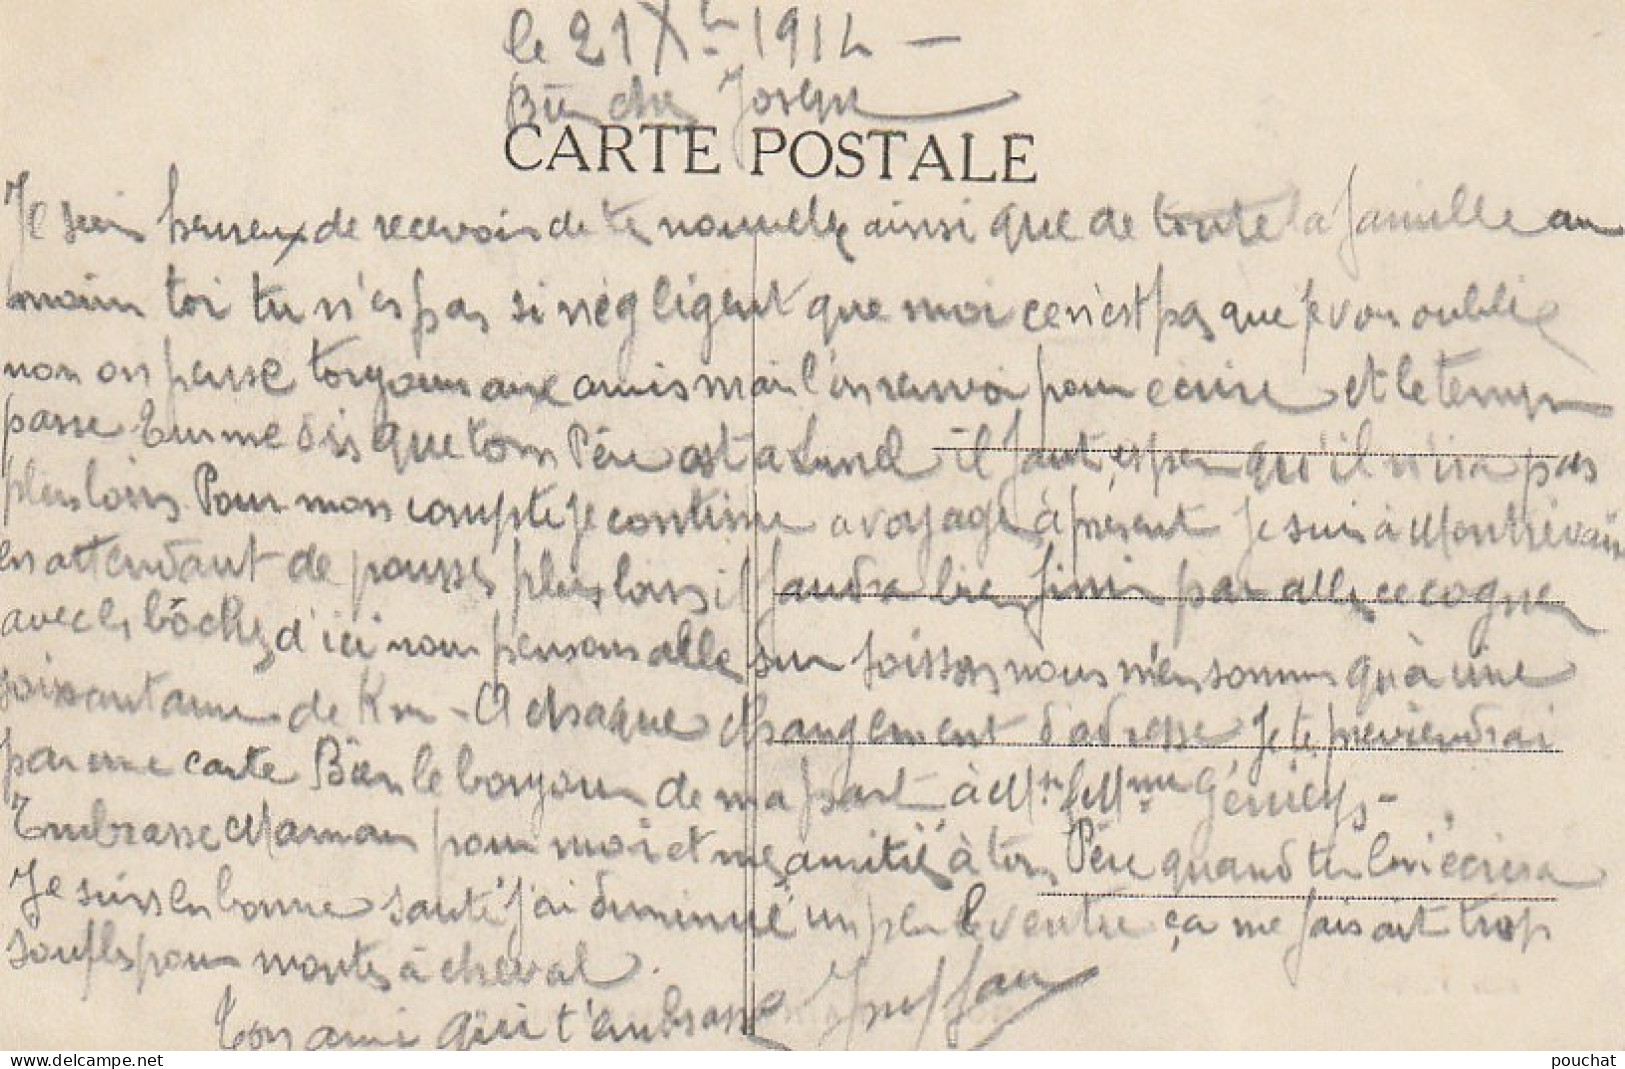 le 21 Xbre 1914 -
Bien cher Joseph
CARTE POSTALE
Je suis heureux de recevoir de tes nouvelles ainsi que de toute la famille au
moins toi tu n'es pas si négligent que moi ce n'est pas que je vous oublie
non on pense toujours aux amis mais l'on pour écrire et le temps
passe Tu me dis que ton Père est a Lunel il faut esperer qu'il n'ira pas
plus loin Pour mon compte je continue a voyagé à présent Je suis à
en attendant de pousser plus loin il faudra bien finir par aller ce cogner
avec les bôches d'ici nous pensons aller sur Soissons nous n'en sommes qu'à une
soixantaine de Km - A chaque changement d'adresse Je te previendrai
par une carte Bien le bonjour de ma part à Mr & Mme Génieys -
Embrasse Maman pour moi et mes amitié à ton Père quand tu lui écriera
Je suis en bonne santé j'ai diminué un peu le ventre ça me faisait trop
soufler pour monter à cheval.
Ton ami qui t'embrasse
pouchat